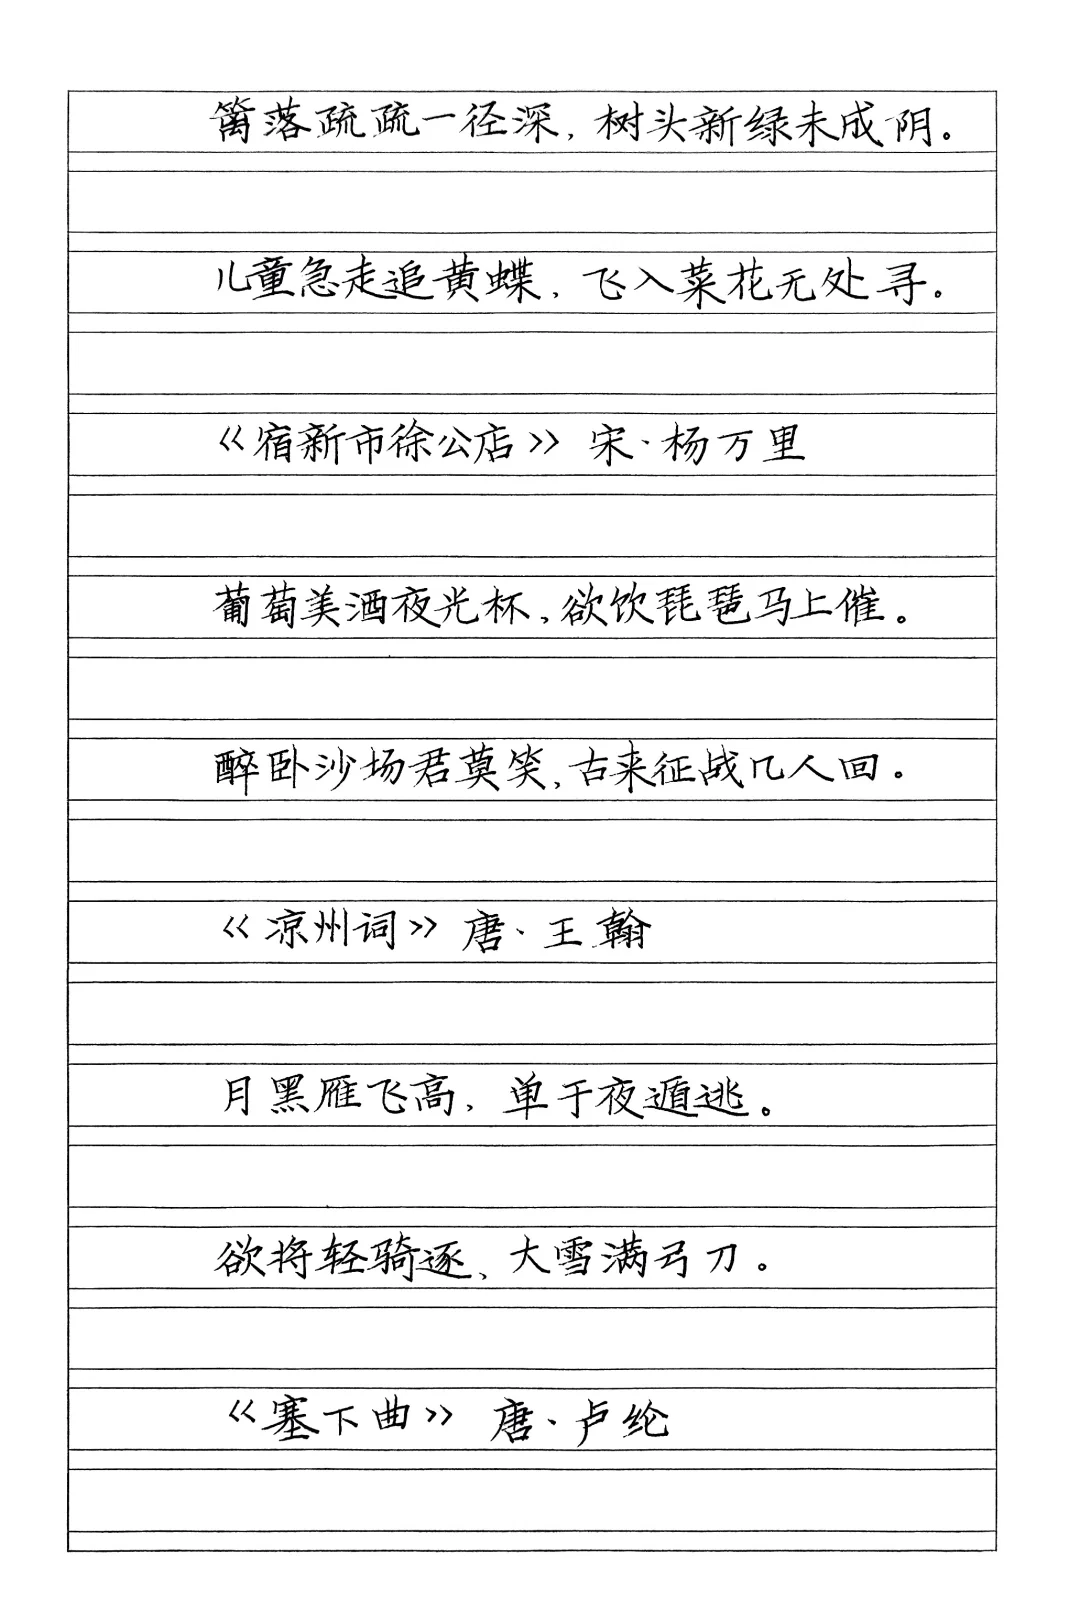 篱落疏疏一径深，树头新绿未成阴。
儿童急走追黄蝶，飞入菜花无处寻。
《宿新市徐公店》 宋·杨万里
葡萄美酒夜光杯，欲饮琵琶马上催。
醉卧沙场君莫笑，古来征战几人回。
《凉州词》 唐·王翰
月黑雁飞高，单于夜遁逃。
欲将轻骑逐，大雪满弓刀。
《塞下曲》 唐·卢纶